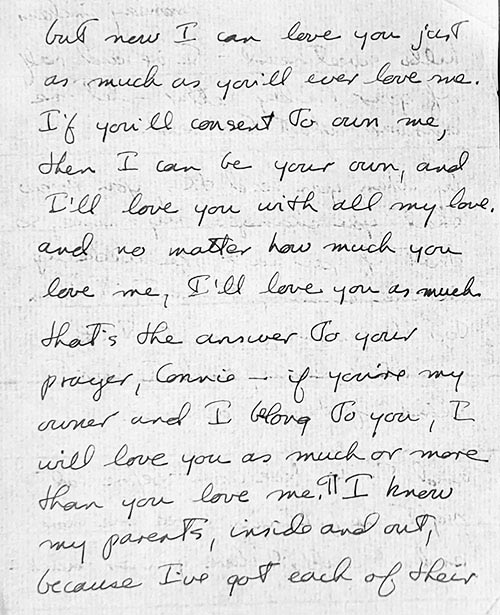 but now I can love you just
as much as you'll ever love me.
If you'll consent to own me,
then I can be your own, and
I'll love you with all my love.
and no matter how much you
love me, I'll love you as much.
that's the answer to your
prayer, Connie — if you're my
owner and I belong to you, I
will love you as much or more
than you love me. ¶ I know
my parents, inside and out,
because I've got each of their